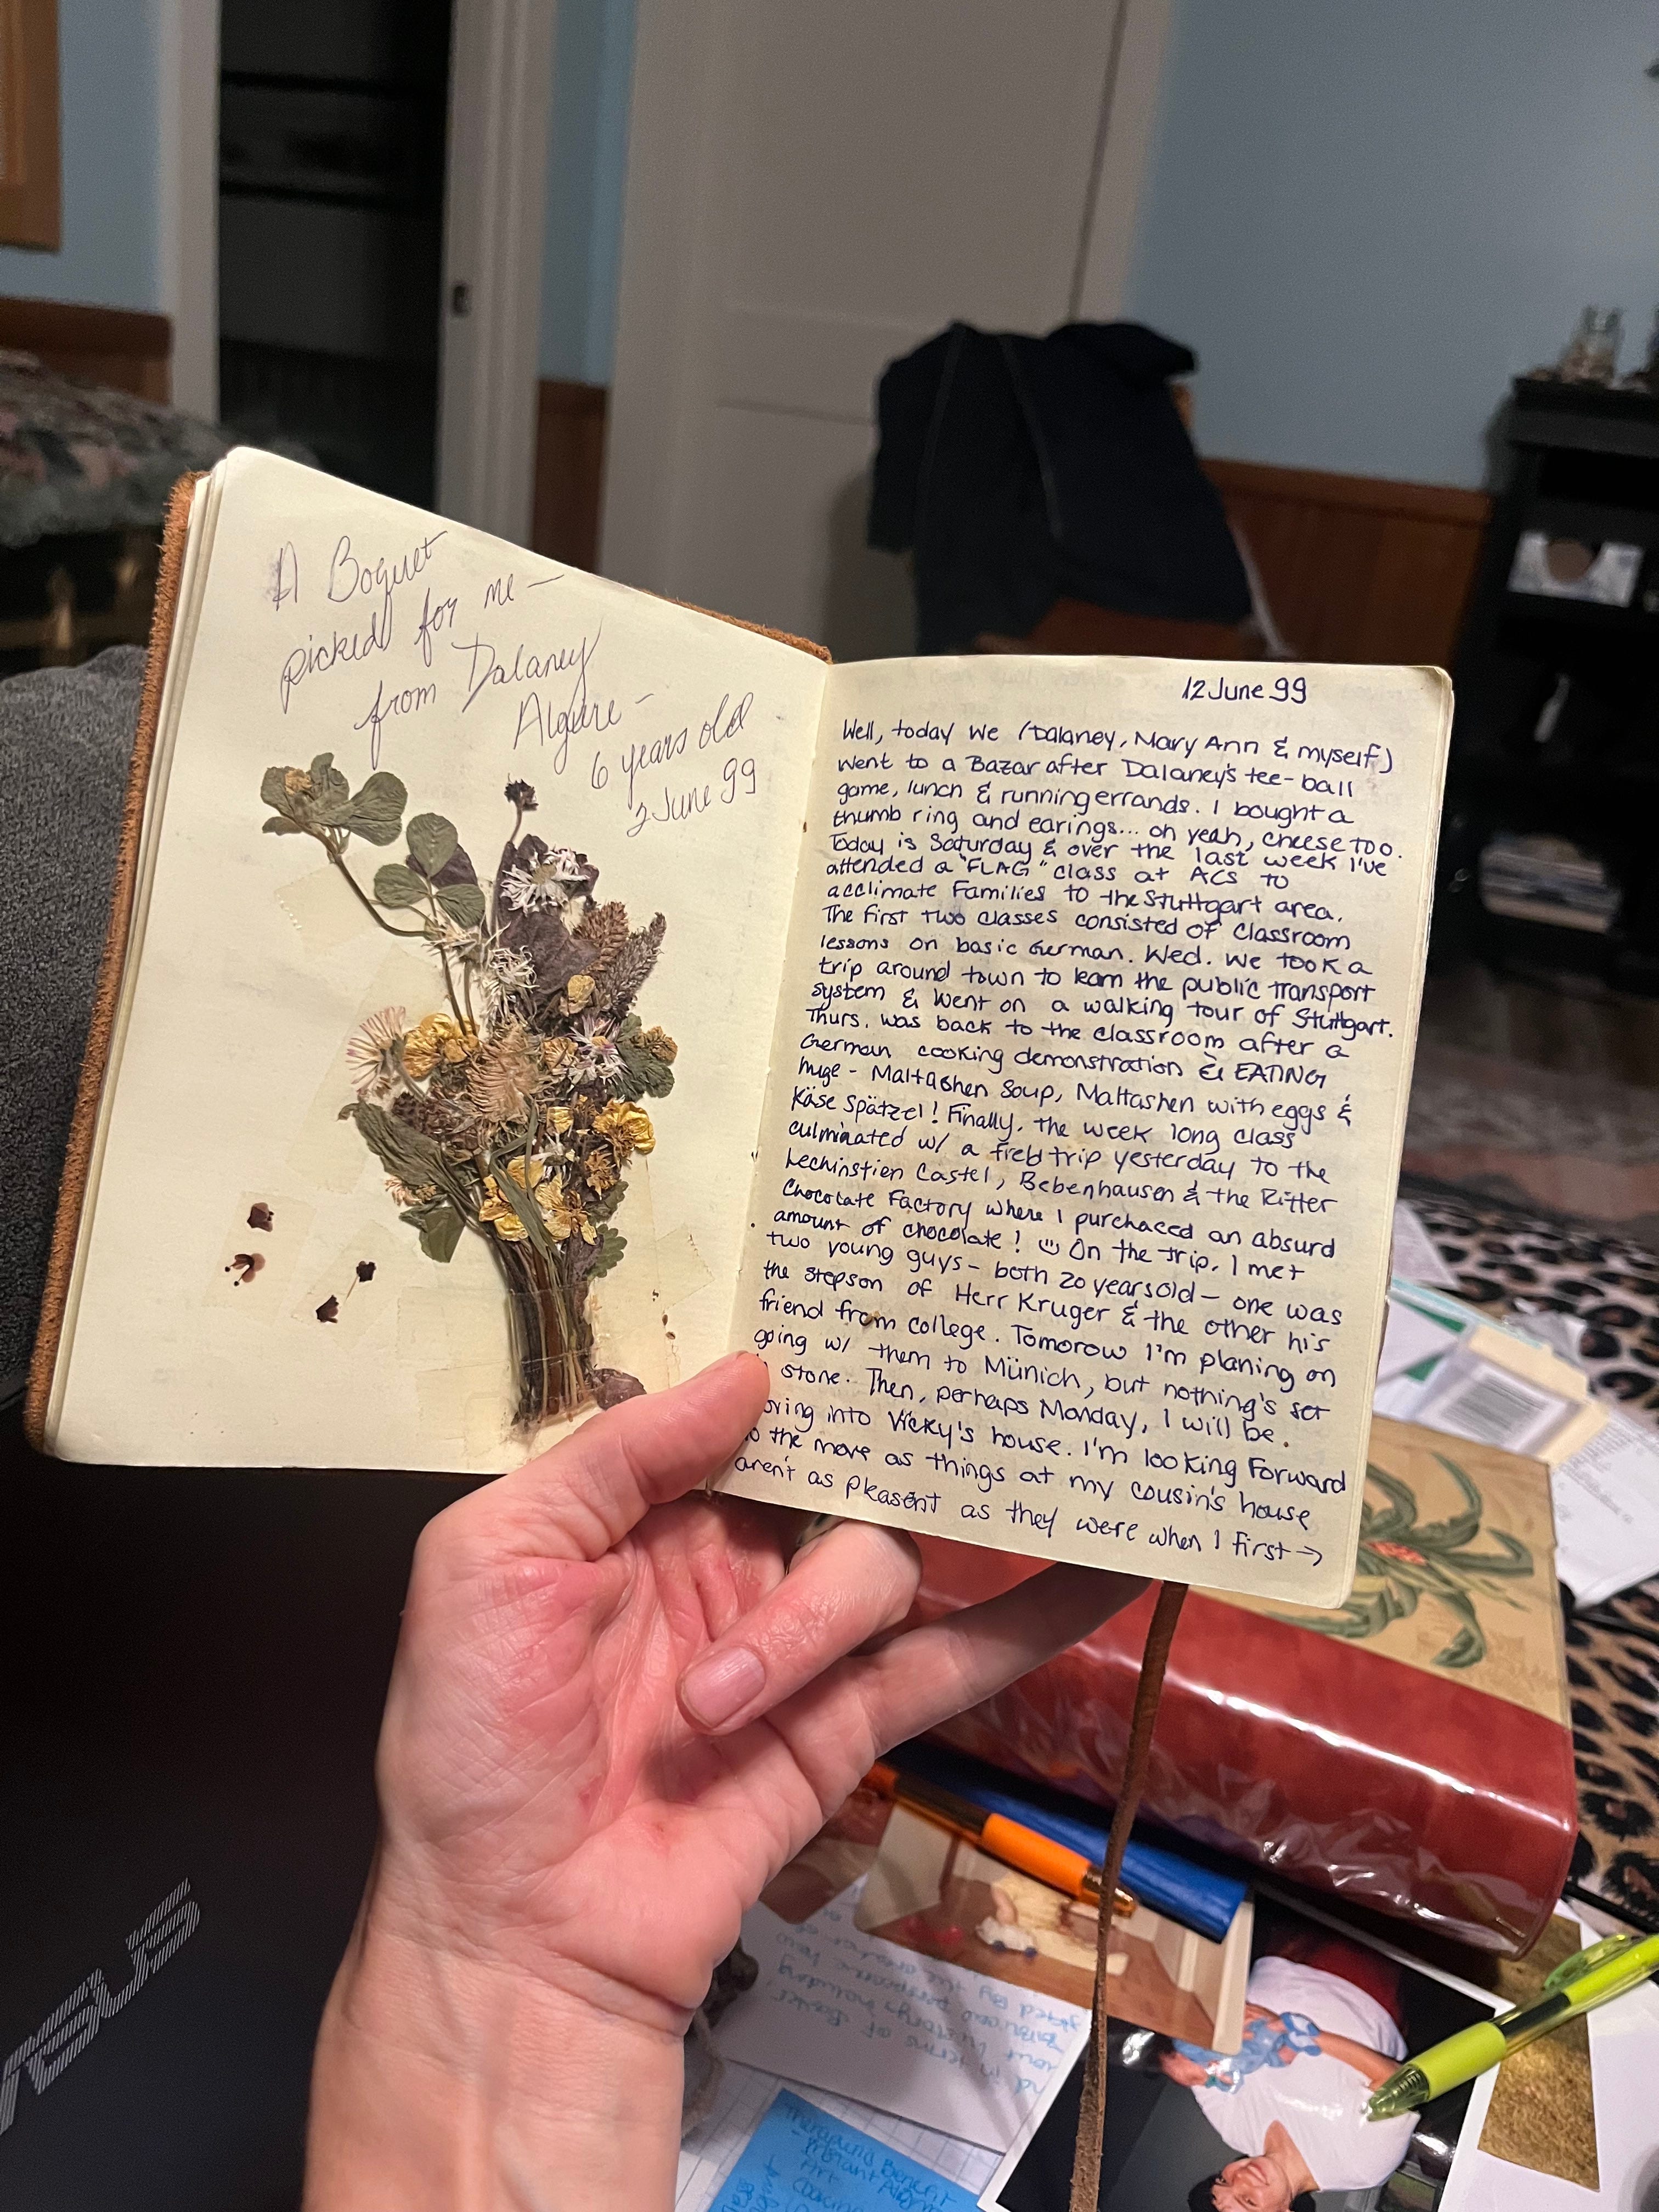 A Boquet
picked for me —
from Dalaney
Algire —
6 years old
2 June 99
12 June 99
Well, today we (Dalaney, Mary Ann & myself)
went to a Bazar after Dalaney's tee-ball
game, lunch & running errands. I bought a
thumb ring and earings... oh yeah, cheese too.
Today is Saturday & over the last week I've
attended a "FLAG" class at ACS to
acclimate Families to the Stuttgart area.
The first two classes consisted of classroom
lessons on basic German. Wed. we took a
trip around town to learn the public transport
system & went on a walking tour of Stuttgart.
Thurs. was back to the classroom after a
German cooking demonstration & EATING
huge - Maltashen Soup, Maltashen with eggs &
Käse Spätzel! Finally, the week long class
culminated w/ a field trip yesterday to the
Lechinstien Castel, Bebenhausen & the Ritter
Chocolate Factory where I purchased an absurd
amount of chocolate! ☺ On the trip, I met
two young guys - both 20 years old - one was
the stepson of Herr Kruger & the other his
friend from college. Tomorow I'm planing on
going w/ them to Münich, but nothing's set
stone. Then, perhaps Monday, I will be
into Vicky's house. I'm looking Forward
the move as things at my cousin's house
aren't as pleasent as they were when I first →
ASUS